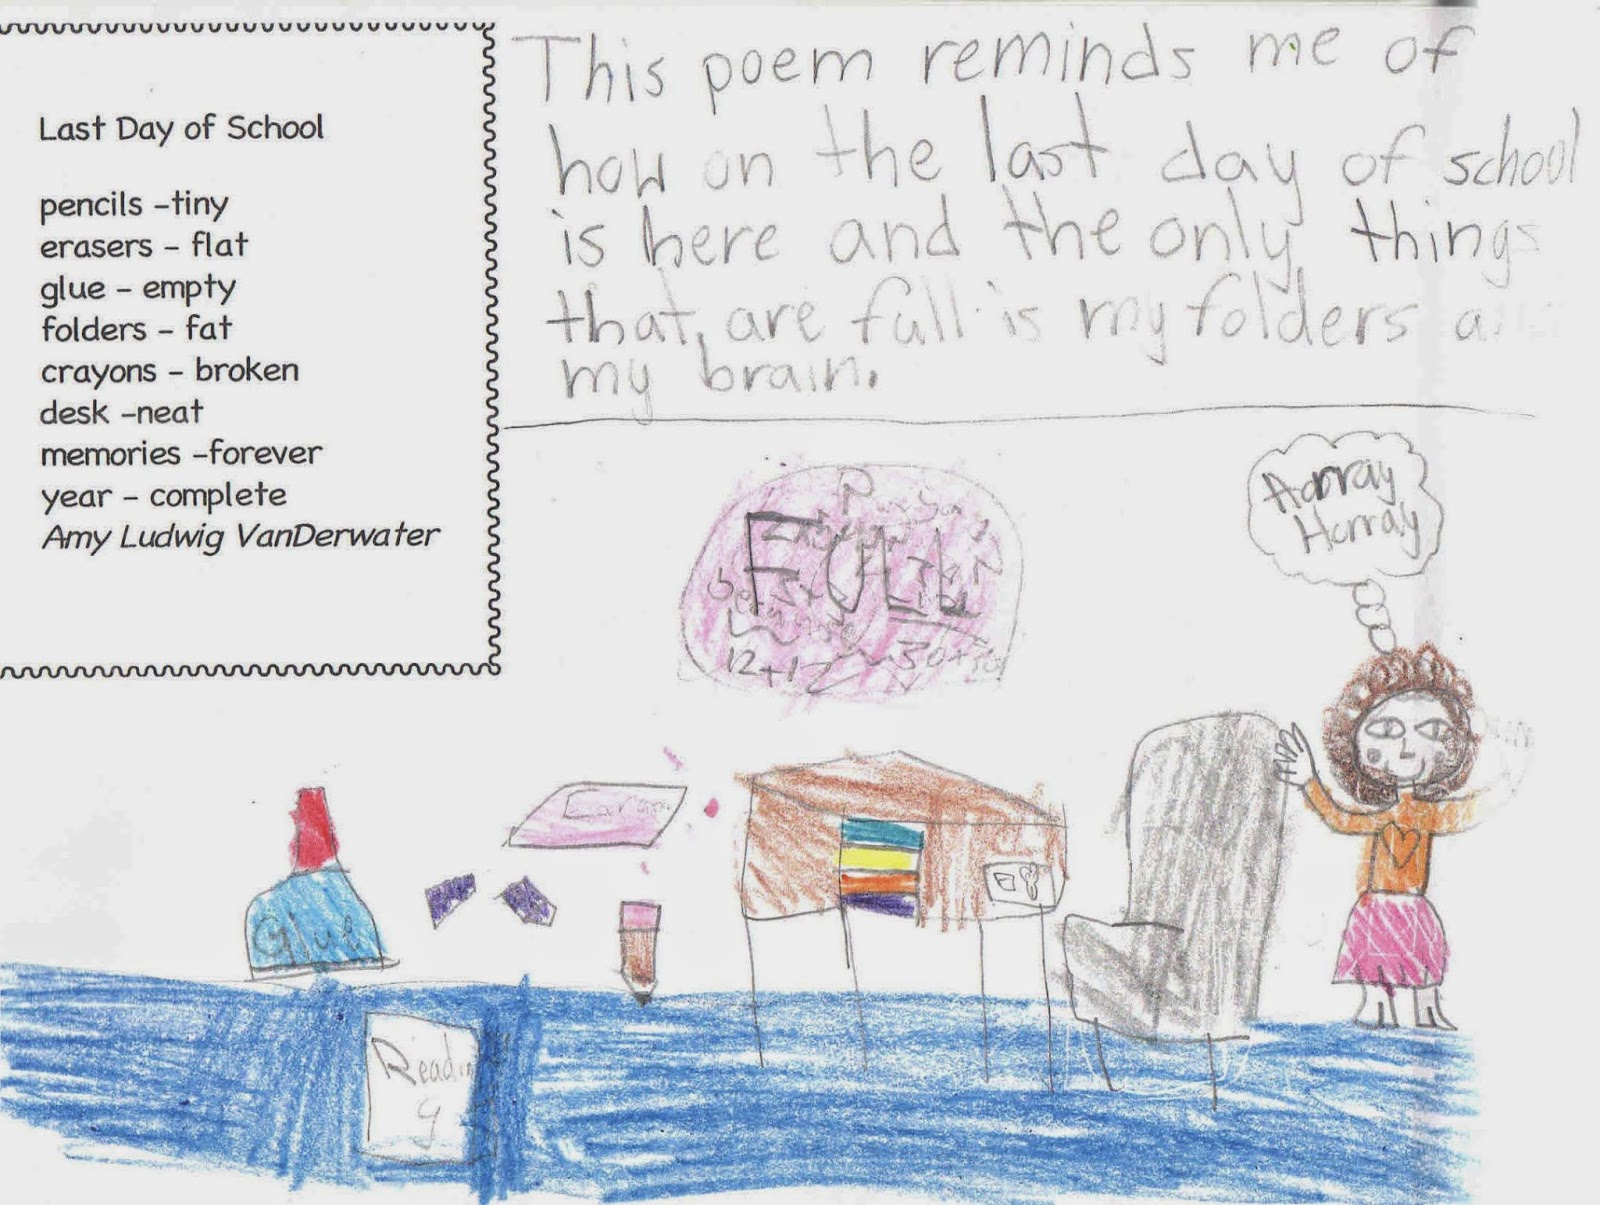 Last Day of School
pencils -tiny
erasers - flat
glue - empty
folders - fat
crayons - broken
desk -neat
memories -forever
year - complete
Amy Ludwig VanDerwater
This poem reminds me of
how on the last day of school
is here and the only things
that are full is my folders
my brain.
Horray
Horray
FULL
12+12
Glue
Reading